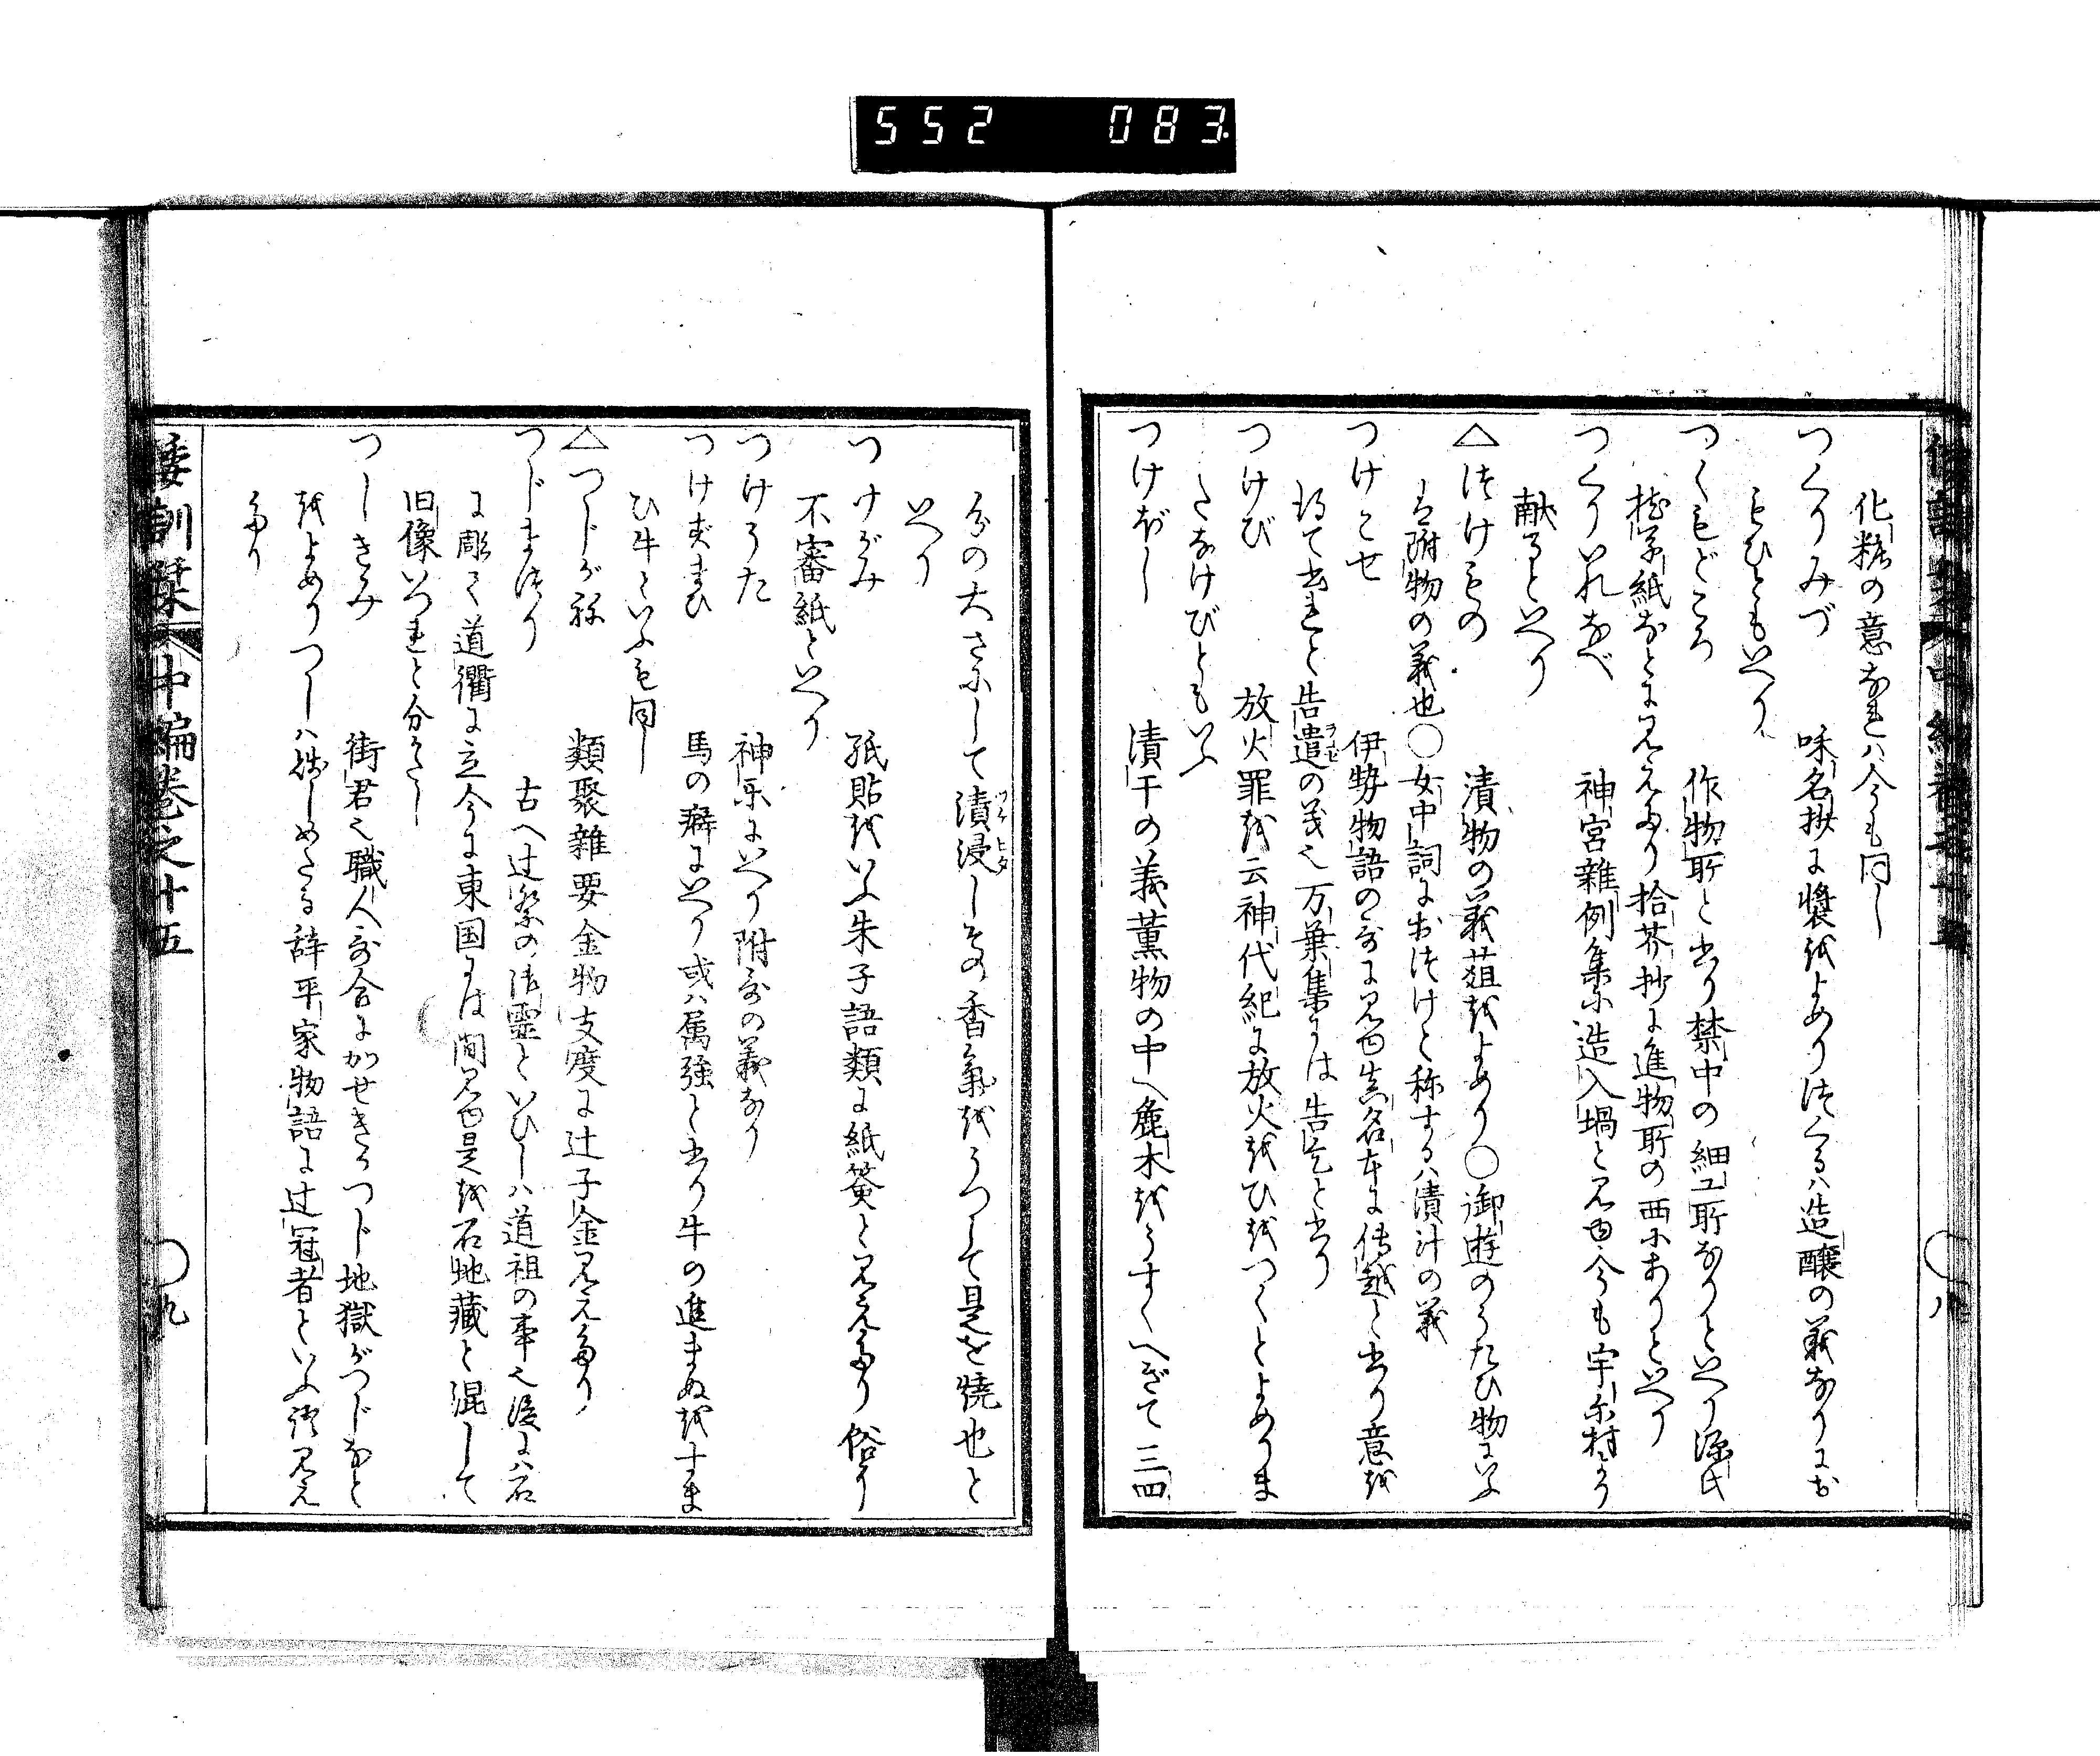 552 083
化粧の意なれハ今も同し
つくりみづ 味名抄に漿をよめり つくるハ造醸の義なりにお
もひともいへり
つくもどころ 作物所と書り禁中の細工所なりといへり源氏
枕草紙などに見えたり拾芥抄に進物所の西にありといへり
つくりいれなべ 神宮雑例集に造入堝と見ゆ今も宇尓村より
献るといへり
△つけもの 漬物の義葅をよめり〇御遊のうたひ物にいふ
は附物の義也〇女中詞におつけと称するハ漬汁の義
つけこせ 伊勢物語の哥に見ゆ真名本に传越と書り意を
得て書れと告遣の義也万葉集には告乞と書り
つけび 放火罪を云神代紀に放火をひをつくとよめりま
たなけびともいふ
つけぼし 漬干の義薫物の中へ麁木をうすくへぎて三四
分の大さにして漬浸しその香氣をうつして是を焼也と
いへり
つけがみ 紙貼をいふ朱子語類に紙簽と見えたり俗に
不審紙といへり
つけうた 神楽にいへり附哥の義なり
つけずまひ 馬の癖にいへり或ハ属強と書り牛の進まぬをすま
ひ牛といふも同し
△つじがね 類聚雜要金物支度に辻子金見えたり
つじまつり 古へ辻祭の御霊といひしハ道祖の事也後にハ石
に彫て道衢に立今に東国には間見ゆ是を石地藏と混して
旧像いつれと分かたし
つしきみ 街君也職人哥合にかせきつつじ地獄がつじなと
をよめりつしハ しめたる辞平家物語に辻冠者といふ詞見え
たり
倭訓栞 中編巻之十五 〇九
〇八